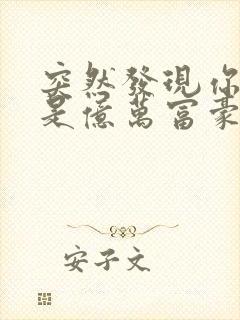 突然發現你
是億萬富豪
安子文